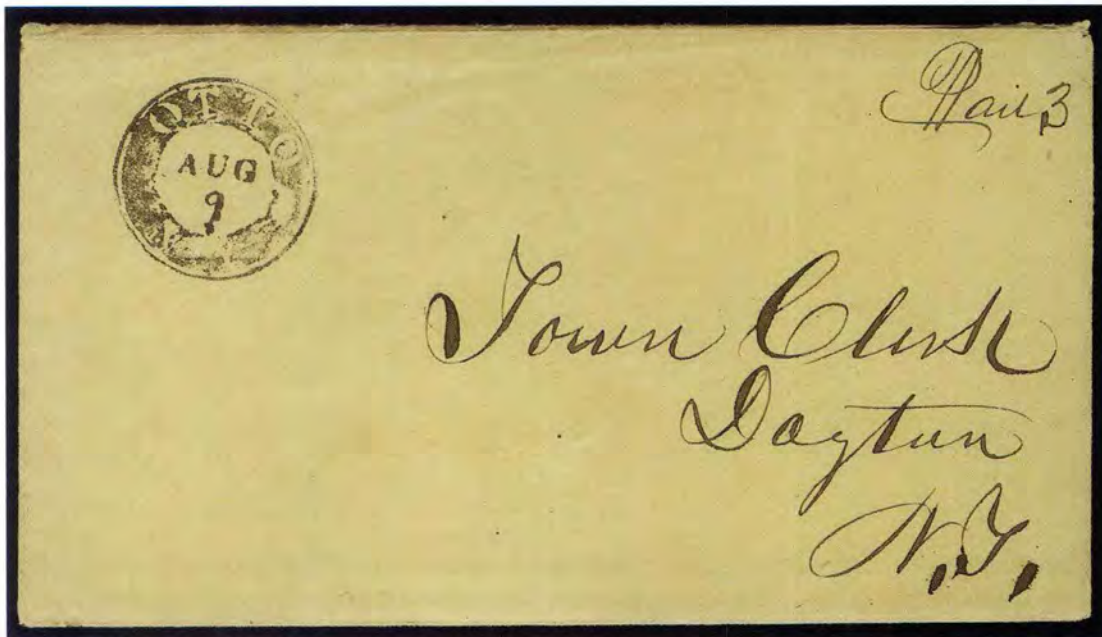 OTTO
AUG
9
Paid 3
Town Clerk
Dayton
N.Y.